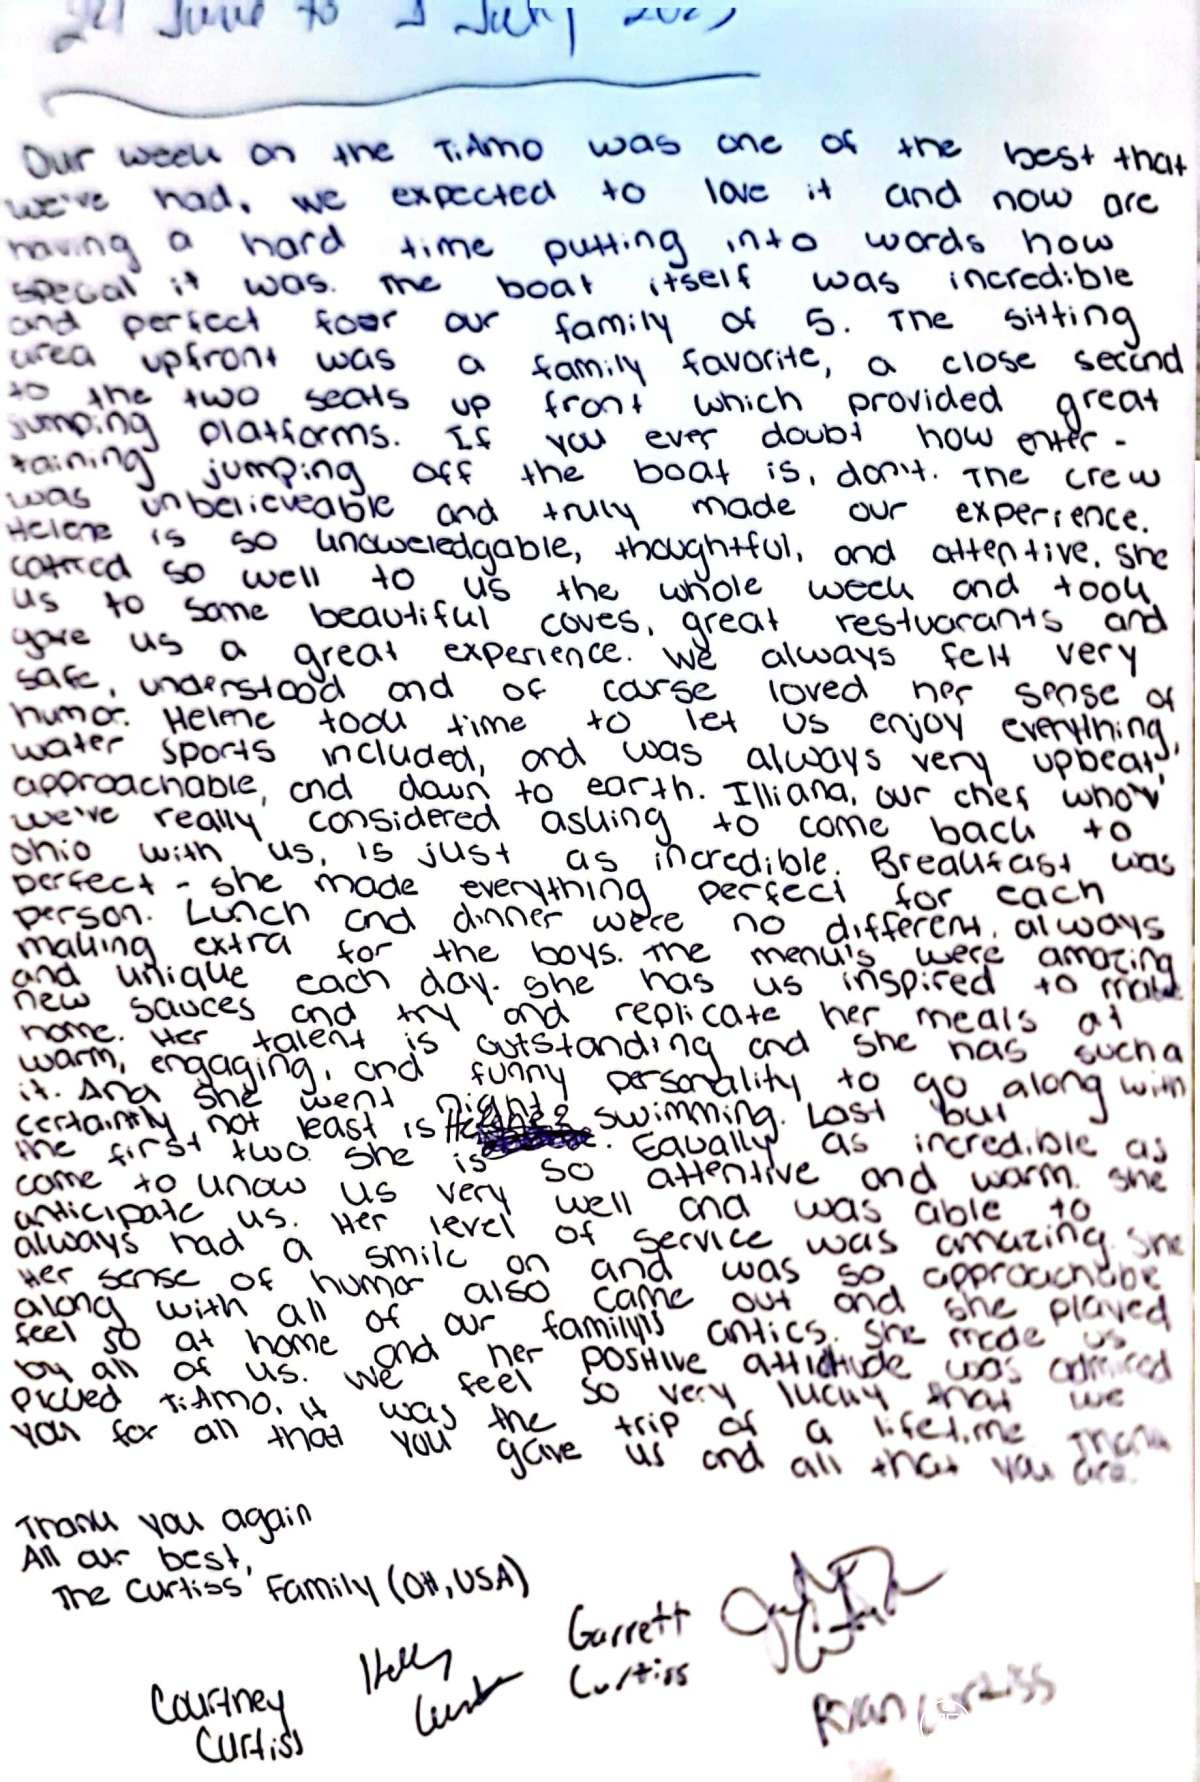 24 June to 1 July
Our week on the TiAmo was one of the best that
we've had. we expected to love it and now are
having a hard time putting into words how
special it was. The boat itself was incredible
and perfect foor our family of 5. The sitting
area upfront was a family favorite, a close second
to the two seats up front which provided great
jumping platforms. If you ever doubt how enter-
taining jumping off the boat is, don't. The crew
was unbelieveable and truly made our experience.
Helene is so knoweledgable, thoughtful, and attentive. She
catered so well to us the whole week and took
us to some beautiful coves, great restuarants and
gave us a great experience. We always felt very
safe, understood and of course loved her sense of
humor. Helene took time to let us enjoy everything,
water sports included, and was always very upbeat,
approachable, and down to earth. Illiana, our chef who
we've really considered asking to come back to
Ohio with us, is just as incredible. Breakfast was
perfect - she made everything perfect for each
person. Lunch and dinner were no different, always
making extra for the boys. The menu's were amazing
and unique each day. She has us inspired to make
new sauces and try and replicate her meals at
home. Her talent is outstanding and she has such a
warm, engaging, and funny personality to go along with
it. And she went night swimming. Last but
certainly not least is . Equally as incredible as
the first two she is so attentive and warm. She
came to know us very well and was able to
anticipate us. Her level of service was amazing. She
always had a smile on and was so approachabe
Her sense of humor also came out and she played
along with all of our family's antics. She made us
feel so at home and her positive attidtude was admired
by all of us. We feel so very lucky that we
picked TiAmo. it was the trip of a lifetime Thank
you for all that you gave us and all that you are.
Thank you again
All our best,
The Curtiss' Family (OH, USA)
Courtney
Curtiss
Holly
Garrett
Curtiss
Ryan Curtiss